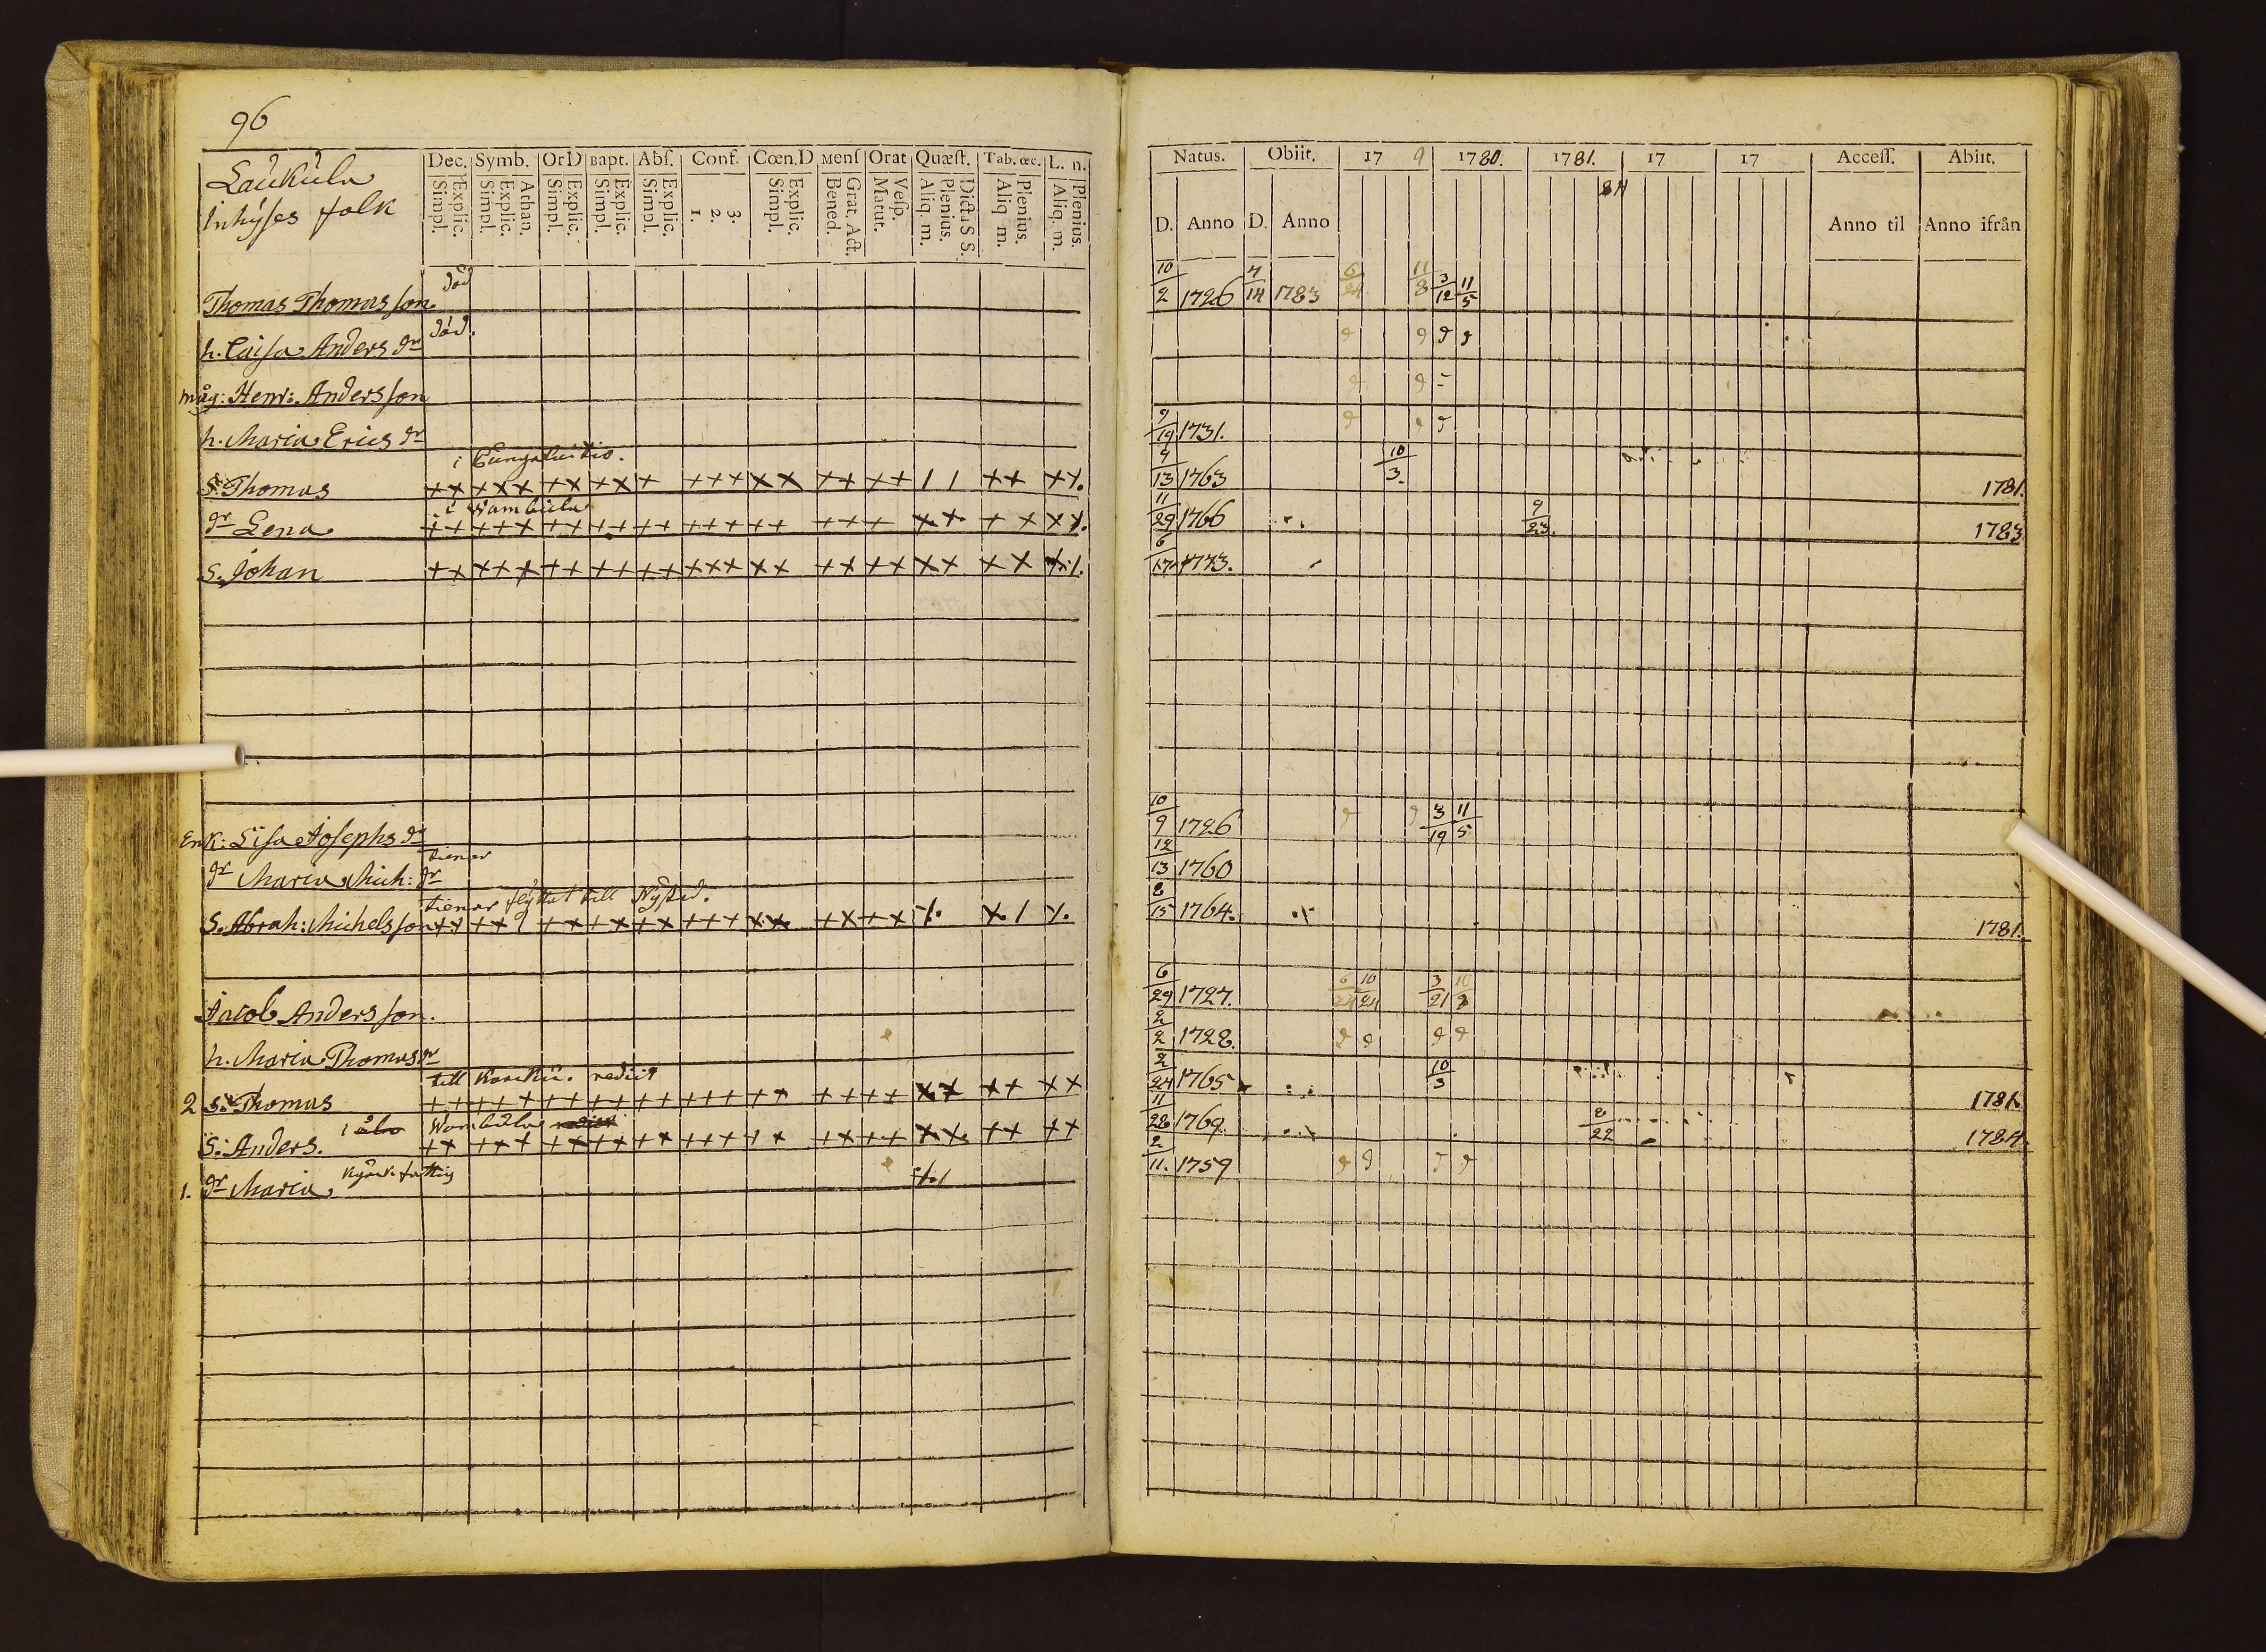 96
Laukula
Inhyses folk
Dec. Symb. OrD Bapt. Abs. Conf. Cœn.D Mens Orat Quæst. Tab. œc. L. n.
Simpl. Explic. Simpl. Explic. Athan. Simpl. Explic. Simpl. Explic. Simpl. Explic. 1. 2. 3. Simpl. Explic. Bened. Grat. Act. Matut. Vesp. Aliq. m. Plenius. Dicta S S. Aliq m. Plenius. Aliq. m. Plenius.
Natus. Obiit. 17 9 1780. 1781. 17 17 Access. Abiit.
84
D. Anno D. Anno Anno til Anno ifrån
död
Thomas Thomasson. 10/2 1726 4/14 1783 6/24 11/8 3/12 11/5
död.
h. Caisa Anders dr
måg: Henr: Andersson
h. Maria Erics dr 9/19 1731.
i
S. Thomas ++ +++ ++ +++ + +++ ++ ++ ++ / / ++ ++. 4/13 1763 10/3. 1781.
i Wambula
dr Lena ++ +++ ++ ++ ++ +++ ++ +++ ++ + + ++. 11/29 1766 9/23. 1783
S. Johan ++ +++ ++ ++ ++ +++ ++ ++ ++ ++ + + 6/17 1773.
Enk: Lisa Josephs dr 10/9 1726 3/19 11/5
tienar
dr Maria Mich: dr 12/13 1760
tienar flyttat till Nystad.
S. Abrah: Michelsson ++ ++ ++ ++ ++ +++ ++ ++ ++ 8/15 1764. 1781.
Jacob Andersson. 6/29 1727. 6/24 10/24 3/21 10/8
h. Maria Thomas dr 2/2 1728.
till rediit
2 S. Thomas ++ +++ ++ ++ ++ +++ ++ ++ ++ ++ ++ ++ 2/24 1765 10/3 1781.
i åbo Wambula rediit
S. Anders. ++ +++ ++ ++ ++ +++ ++ ++ ++ ++ ++ ++ 11/28 1769 2/22 1784.
kyrck fattig
1. dr Maria. 2/11. 1759